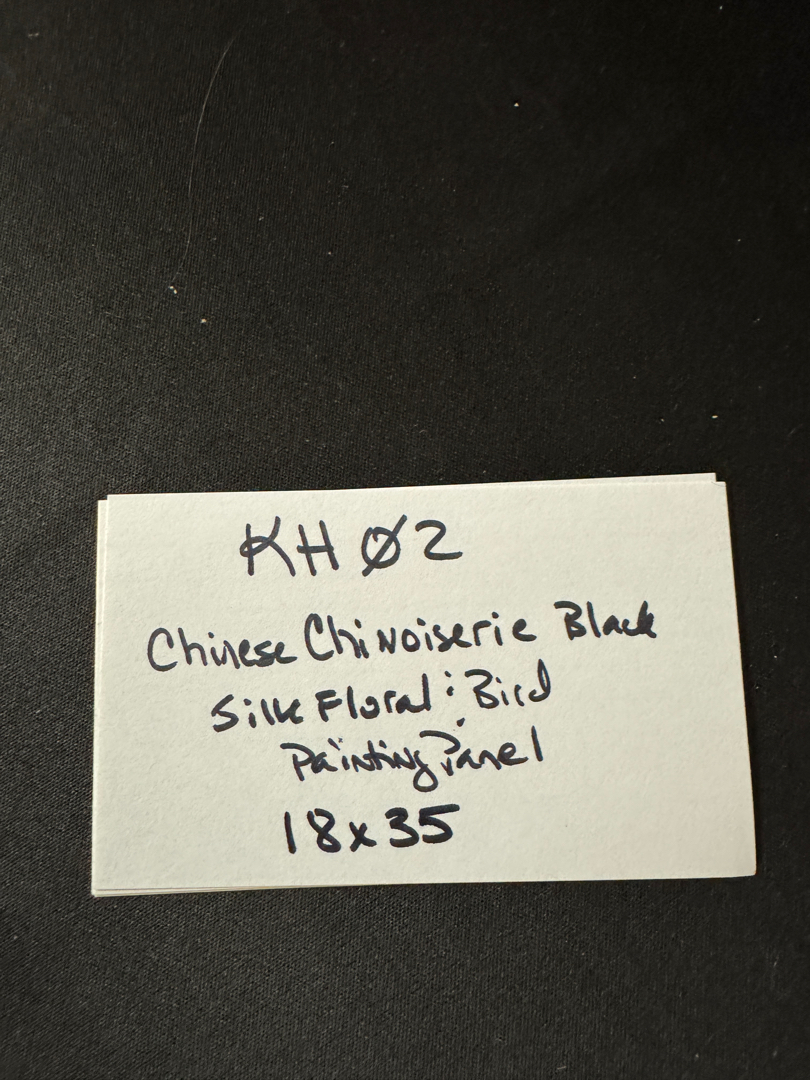 KH Ø2
Chinese Chinoiserie Black
Silk Floral : Bird
Painting Panel
18x35